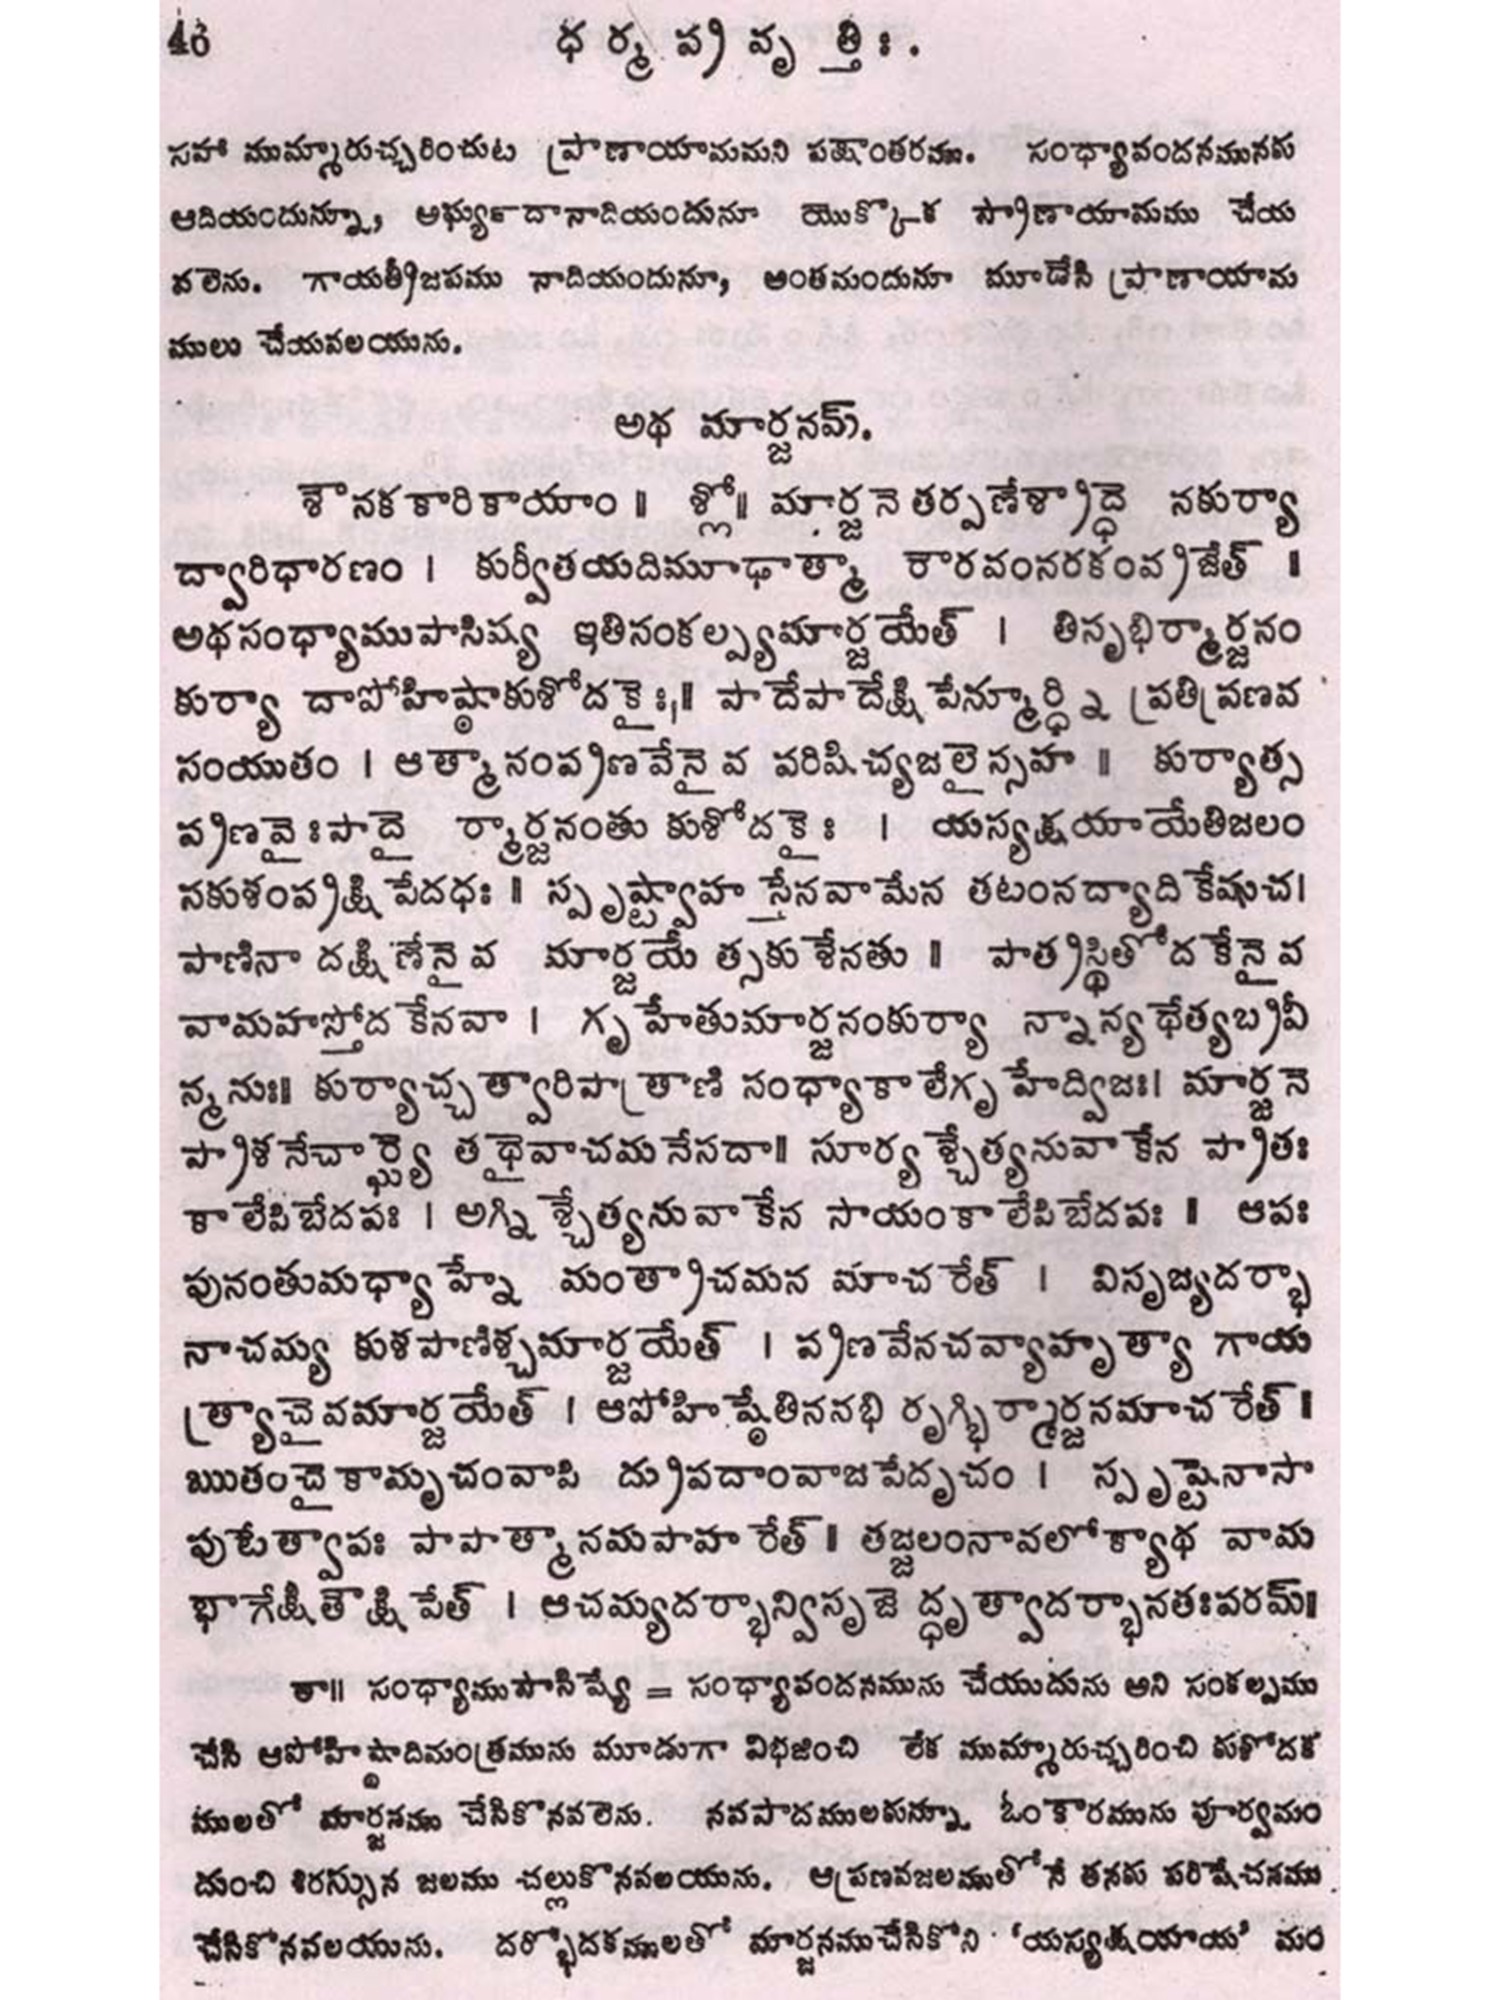 46 ధర్మప్రవృత్తిః.
సహా ముమ్మారుచ్చరించుట ప్రాణాయామమని పక్షాంతరము. సంధ్యావందనమునకు
ఆదియందున్నూ, అర్ఘ్యప్రదానాదియందునూ యొక్కొక ప్రాణాయామము చేయ
వలెను. గాయత్రీజపము నాదియందునూ, అంతమందునూ మూడేసి ప్రాణాయామ
ములు చేయవలయును.
అథ మార్జనమ్.
శౌనకకారికాయాం ॥ శ్లో॥ మార్జనెతర్పణేశ్రాద్ధె నకుర్యా
ద్వారిధారణం । కుర్వీతయదిమూఢాత్మా రౌరవంనరకంవ్రజేత్ ॥
అథసంధ్యాముపాసిష్య ఇతిసంకల్ప్యమార్జయేత్ । తిసృభిర్మార్జనం
కుర్యా దాపోహిష్ఠాకుశోదకైః॥ పాదేపాదేక్షిపేన్మూర్ధ్ని ప్రతిప్రణవ
సంయుతం । ఆత్మానంప్రణవేనైవ పరిషిచ్యజలైస్సహ ॥ కుర్యాత్స
ప్రణవైఃపాదై ర్మార్జనంతు కుశోదకైః । యస్యక్షయాయేతిజలం
సకుశంప్రక్షిపేదధః ॥ స్పృష్ట్వాహస్తేనవామేన తటంనద్యాదికేషుచ।
పాణినా దక్షిణేనైవ మార్జయే త్సకుశేనతు ॥ పాత్రస్థితోదకేనైవ
వామహస్తోదకేనవా । గృహేతుమార్జనంకుర్యా న్నాన్యథేత్యబ్రవీ
న్మనుః॥ కుర్యాచ్చత్వారిపాత్రాణి సంధ్యాకాలేగృహేద్విజః। మార్జనె
ప్రాశనేచార్ఘ్యె తథైవాచమనేసదా॥ సూర్యశ్చేత్యనువాకేన ప్రాతః
కాలేపిబేదపః । అగ్నిశ్చేత్యనువాకేన సాయంకాలేపిబేదపః ॥ ఆపః
పునంతుమధ్యాహ్నే మంత్రాచమన మాచరేత్ । విసృజ్యదర్భా
నాచమ్య కుశపాణిశ్చమార్జయేత్ । ప్రణవేనచవ్యాహృత్యా గాయ
త్ర్యాచైవమార్జయేత్ । ఆపోహిష్ఠేతిననభి రృగ్భిర్మార్జనమాచరేత్ ॥
ఋతంచైకామృచంవాపి ద్రుపదాంవాజపేదృచం । స్పృష్టెనాసా
పుటేత్వాపః పాపాత్మానమపాహరేత్॥ తజ్జలంనావలోక్యాథ వామ
భాగేక్షితౌక్షిపేత్ । ఆచమ్యదర్భాన్విసృజె ద్ధృత్వాదర్భానతఃపరమ్॥
తా॥ సంధ్యాముపాసిష్యే = సంధ్యావందనమును చేయుదును అని సంకల్పము
చేసి ఆపోహిష్ఠాదిమంత్రమును మూడుగా విభజించి లేక ముమ్మారుచ్చరించి కుశోదక
ములతో మార్జనము చేసికొనవలెను. నవపాదములకున్నూ ఓంకారమును పూర్వమం
దుంచి శిరస్సున జలము చల్లుకొనవలయును. ఆప్రణవజలముతోనే తనకు పరిషేచనము
చేసికోనవలయును. దర్భోదకములతో మార్జనముచేసికోని 'యస్యక్షయాయ' మం